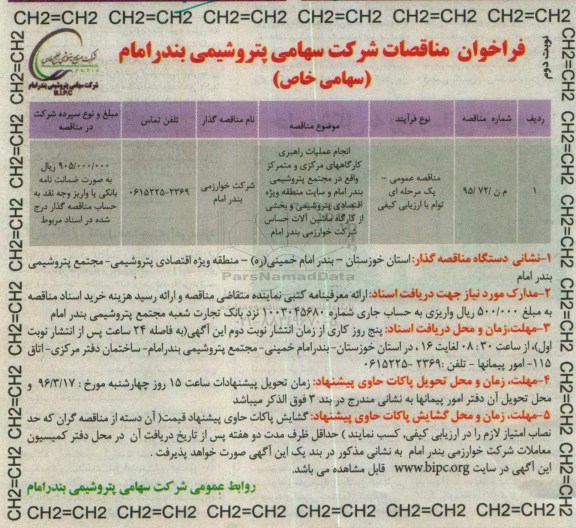 CH2=CH2 CH2=CH2 CH2=CH2 CH2=CH2 CH2=CH2 CH2=CH2 CH2=CH2
نوبت دوم
فراخوان مناقصات شرکت سهامی پتروشیمی بندرامام
(سهامی خاص)
شرکت سهامی پتروشیمی بندرامام
B.I.P.C
ردیف
شماره مناقصه
نوع فرآیند
موضوع مناقصه
نام مناقصه گذار
تلفن تماس
مبلغ و نوع سپرده شرکت
در مناقصه
۱
م ن /۷۲ /۹۵
مناقصه عمومی –
یک مرحله ای
توام با ارزیابی کیفی
انجام عملیات راهبری
کارگاههای مرکزی و متمرکز
واقع در مجتمع پتروشیمی
بندر امام و سایت منطقه ویژه
اقتصادی پتروشیمی و بخشی
از کارگاه ماشین آلات حساس
شرکت خوارزمی بندر امام
شرکت خوارزمی
بندر امام
۰۶۱۵۲۲۵-۲۳۶۹
۹۰۵/۰۰۰/۰۰۰ ریال
به صورت ضمانت نامه
بانکی یا واریز وجه نقد به
حساب مناقصه گذار درج
شده در اسناد مربوط
ParsNamadData
۱-نشانی دستگاه مناقصه گذار: استان خوزستان – بندر امام خمینی(ره) – منطقه ویژه اقتصادی پتروشیمی- مجتمع پتروشیمی
بندر امام
۲-مدارک مورد نیاز جهت دریافت اسناد: ارائه معرفینامه کتبی نماینده متقاضی مناقصه و ارائه رسید هزینه خرید اسناد مناقصه
به مبلغ ۵۰۰/۰۰۰ ریال واریزی به حساب جاری شماره ۱۰۰۳۰۴۵۶۸۰ نزد بانک تجارت شعبه مجتمع پتروشیمی بندر امام
۳-مهلت،زمان و محل دریافت اسناد: پنج روز کاری از زمان انتشار نوبت دوم این آگهی(به فاصله ۲۴ ساعت پس از انتشار نوبت
اول)، از ساعت ۳۰ : ۰۸ لغایت ۱۶ ، در استان خوزستان-بندرامام خمینی- مجتمع پتروشیمی بندرامام- ساختمان دفتر مرکزی-اتاق
۱۱۵- امور پیمانها - تلفن :۲۳۶۹ -۰۶۱۵۲۲۵
۴-مهلت، زمان و محل تحویل پاکات حاوی پیشنهاد: زمان تحویل پیشنهادات ساعت ۱۵ روز چهارشنبه مورخ : ۹۶/۳/۱۷ و
محل تحویل آن دفتر امور پیمانها به نشانی مندرج در بند ۳ فوق الذکر میباشد
۵-مهلت، زمان و محل گشایش پاکات حاوی پیشنهاد: گشایش پاکات حاوی پیشنهاد قیمت( آن دسته از مناقصه گران که حد
نصاب امتیاز لازم را در ارزیابی کیفی، کسب نمایند ) حداقل ظرف مدت دو هفته پس از تاریخ دریافت آن در محل دفتر کمیسیون
معاملات شرکت خوارزمی بندر امام به نشانی مذکور در بند یک این آگهی صورت خواهد پذیرفت .
این آگهی در سایت www.bipc.org قابل مشاهده می باشد.
روابط عمومی شرکت سهامی پتروشیمی بندرامام
CH2=CH2 CH2=CH2 CH2=CH2 CH2=CH2 CH2=CH2 CH2=CH2 CH2=CH2